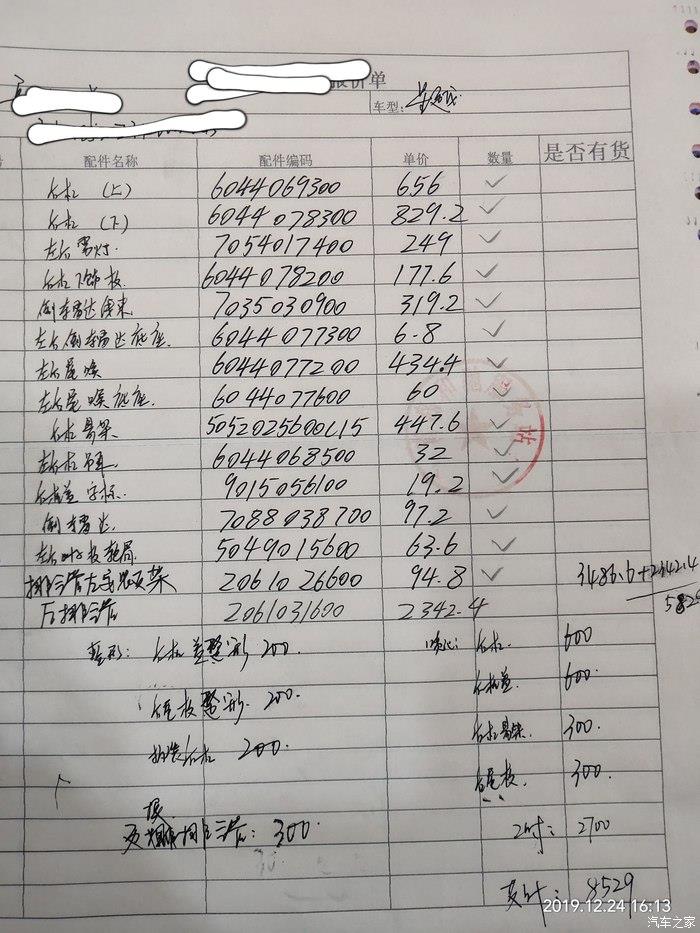 报价单
车型：
配件名称 配件编码 单价 数量 是否有货
后杠（上） 6044069300 656 ✓
后杠（下） 6044078300 829.2 ✓
左后雾灯. 7054017400 249 ✓
后杠下饰板 6044078200 177.6 ✓
倒车雷达线束 7035030900 319.2 ✓
左后倒车雷达底座. 6044077300 6.8 ✓
左后尾喉 6044077200 434.4 ✓
左后尾喉底座. 6044077600 60 ✓
后杠骨架 5052025600C15 447.6 ✓
左后杠吊耳 6044068500 32 ✓
后杠盖字标. 9015056100 19.2 ✓
倒车雷达. 7088038700 97.2 ✓
左后叶子板 5049015600 63.6 ✓
排气管左 2061026600 94.8 ✓ 3486.6+2342.4
后排气管 2061031600 2342.4 582
整形： 后杠盖整形 200. 喷漆： 后杠. 600
后尾板整形. 200. 后杠盖. 600.
拆装后杠 200. 后杠骨架. 300.
后尾板. 300.
排气管： 300. 2时： 2700
共计： 8529
站
2019.12.24 16:13
汽车之家